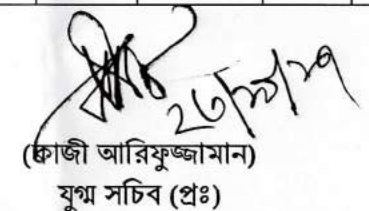 (কাজী আরিফুজ্জামান)
যুগ্ম সচিব (প্রঃ)